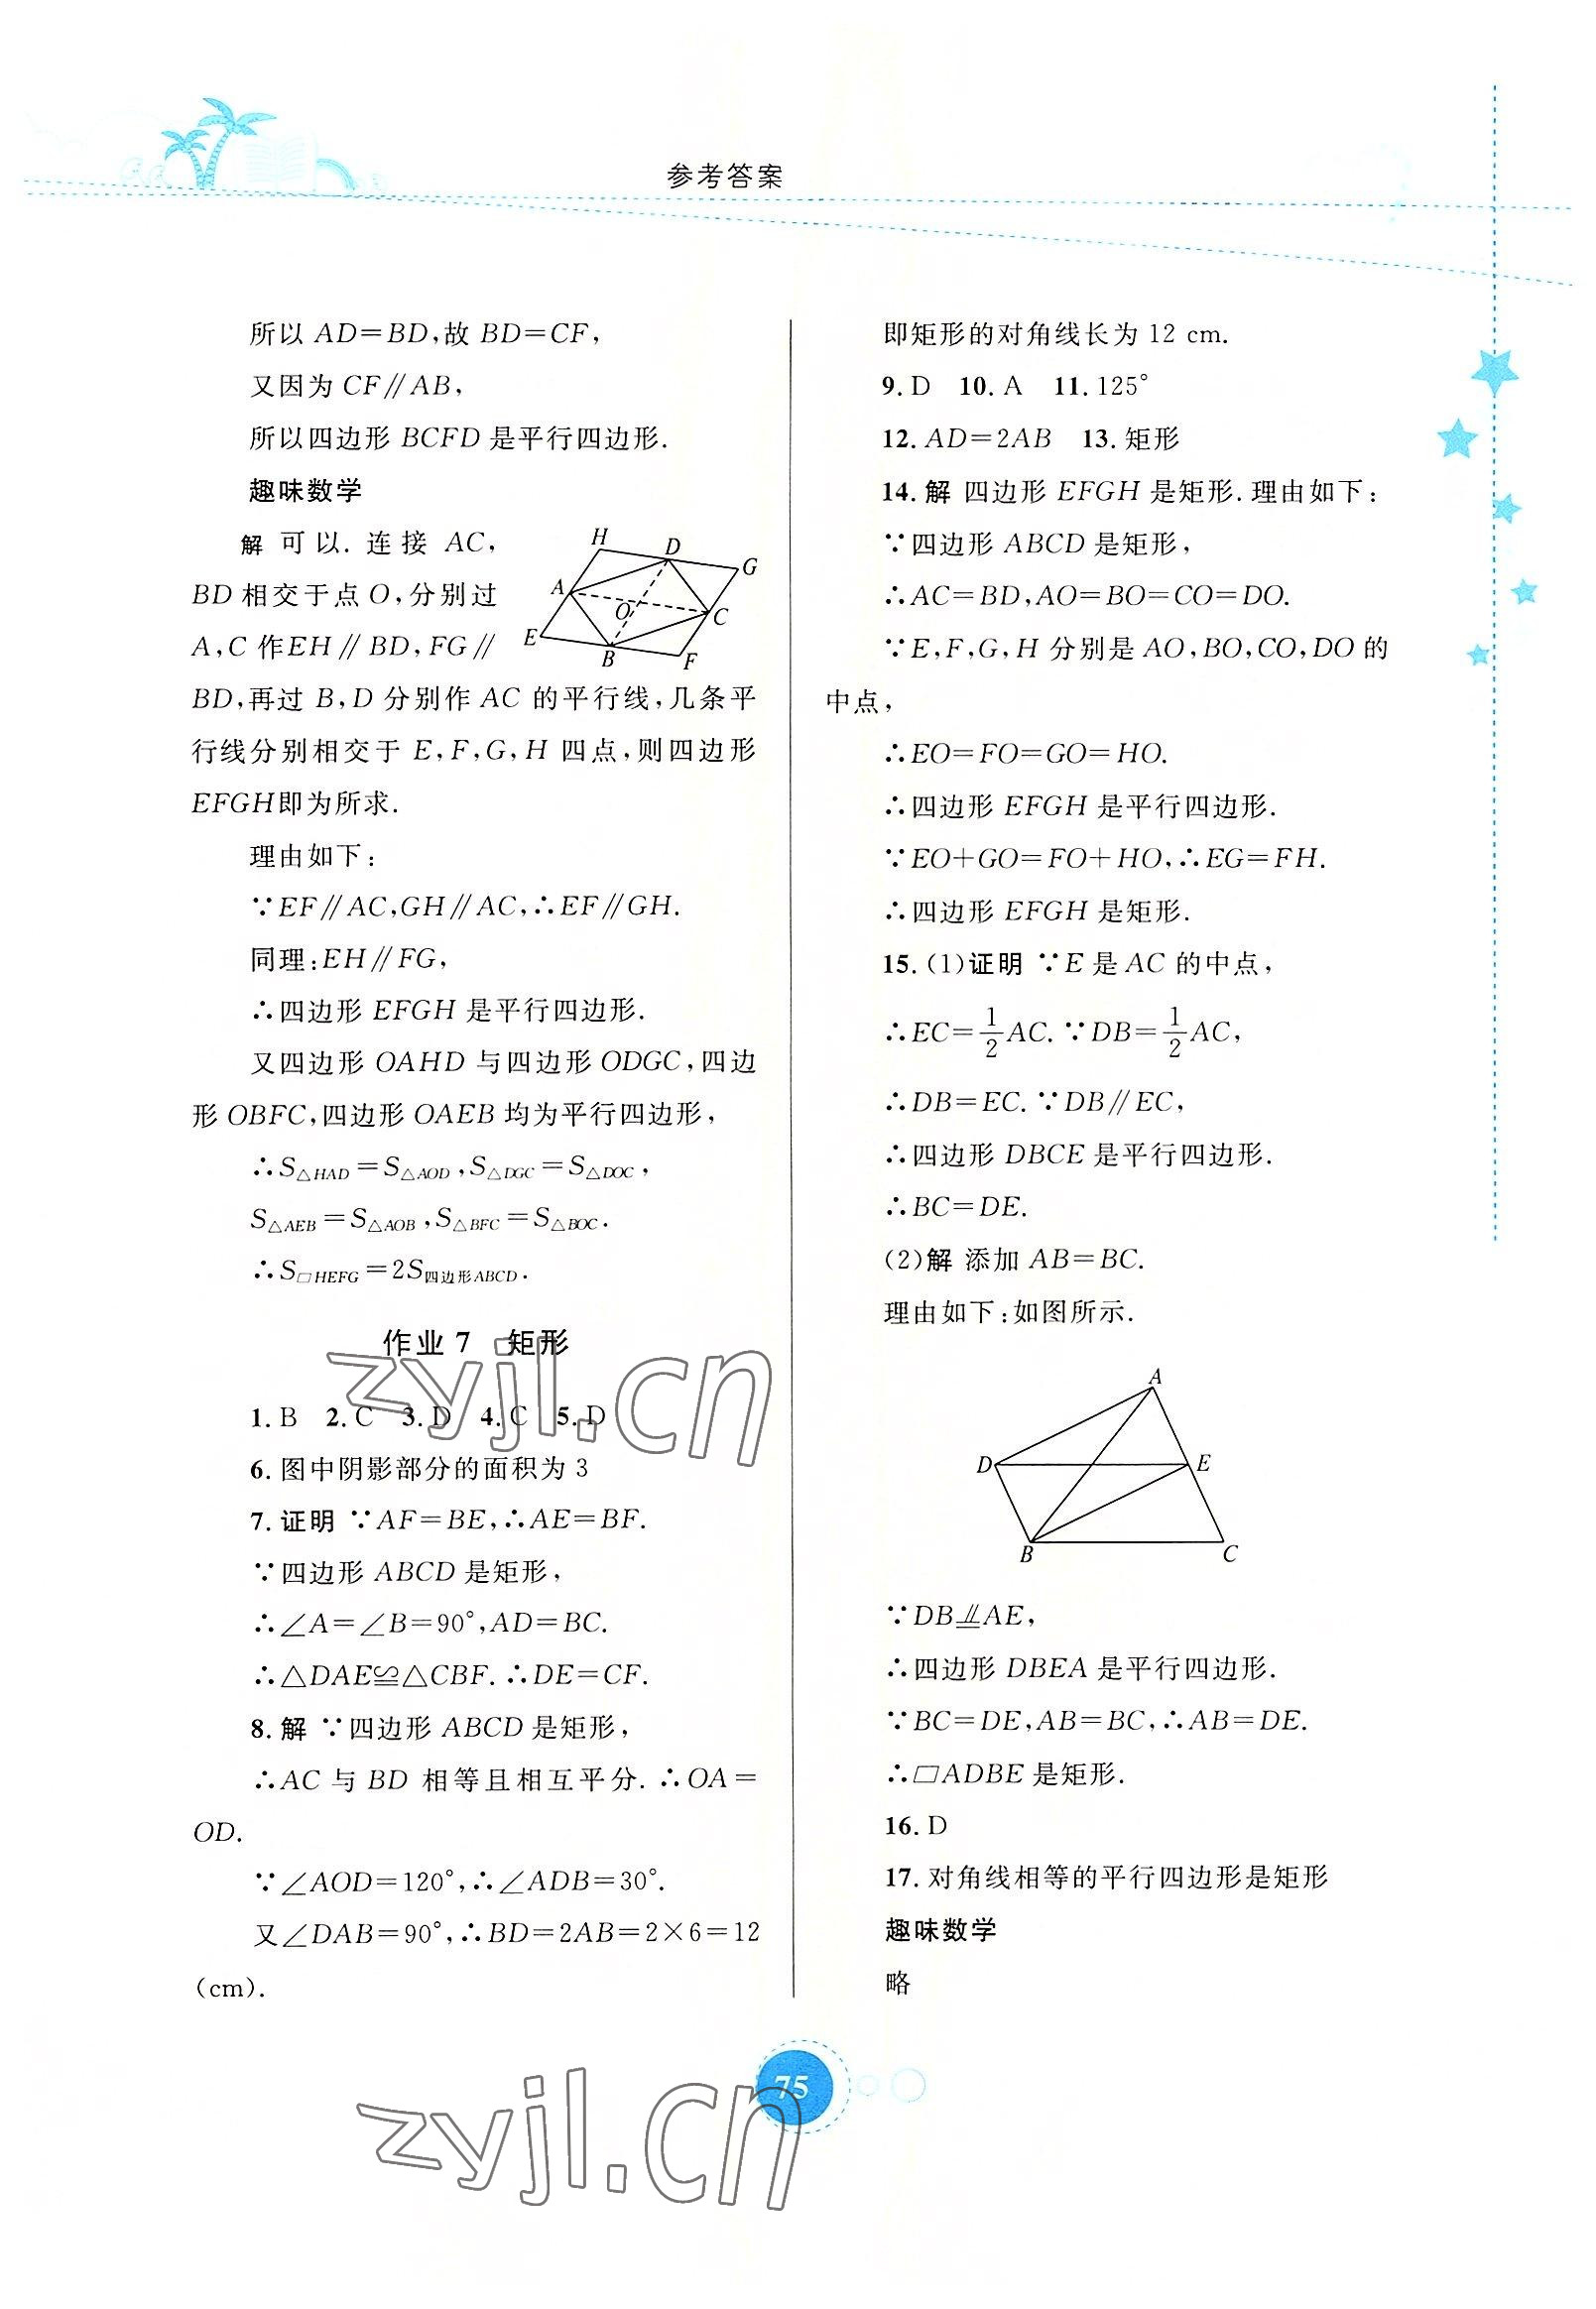 参考答案
所以 AD=BD,故 BD=CF,
又因为 CF∥AB,
所以四边形 BCFD 是平行四边形.
趣味数学
解 可以. 连接 AC,
BD 相交于点 O,分别过
A,C 作EH∥BD,FG∥
BD,再过 B,D 分别作 AC 的平行线,几条平
行线分别相交于 E,F,G,H 四点,则四边形
EFGH即为所求.
H
D
G
A
O
C
E
B
F
理由如下:
∵EF∥AC,GH∥AC,∴EF∥GH.
同理:EH∥FG,
∴四边形 EFGH 是平行四边形.
又四边形 OAHD 与四边形 ODGC,四边
形 OBFC,四边形 OAEB 均为平行四边形,
∴S△HAD=S△AOD,S△DGC=S△DOC,
S△AEB=S△AOB,S△BFC=S△BOC.
∴S□HEFG=2S四边形ABCD.
作业 7 矩形
1. B 2. C 3. D 4. C 5. D
6. 图中阴影部分的面积为 3
7. 证明 ∵AF=BE,∴AE=BF.
∵四边形 ABCD 是矩形,
∴∠A=∠B=90°,AD=BC.
∴△DAE≌△CBF. ∴DE=CF.
8. 解 ∵四边形 ABCD 是矩形,
∴AC 与 BD 相等且相互平分. ∴OA=
OD.
∵∠AOD=120°,∴∠ADB=30°.
又∠DAB=90°,∴BD=2AB=2×6=12
(cm).
即矩形的对角线长为 12 cm.
9. D 10. A 11. 125°
12. AD=2AB 13. 矩形
14. 解 四边形 EFGH 是矩形. 理由如下:
∵四边形 ABCD 是矩形,
∴AC=BD,AO=BO=CO=DO.
∵E,F,G,H 分别是 AO,BO,CO,DO 的
中点,
∴EO=FO=GO=HO.
∴四边形 EFGH 是平行四边形.
∵EO+GO=FO+HO,∴EG=FH.
∴四边形 EFGH 是矩形.
15. (1)证明 ∵E 是 AC 的中点,
∴EC=1/2AC. ∵DB=1/2AC,
∴DB=EC. ∵DB∥EC,
∴四边形 DBCE 是平行四边形.
∴BC=DE.
(2)解 添加 AB=BC.
理由如下:如图所示.
A
D
E
B
C
∵DB⫽AE,
∴四边形 DBEA 是平行四边形.
∵BC=DE,AB=BC,∴AB=DE.
∴□ADBE 是矩形.
16. D
17. 对角线相等的平行四边形是矩形
趣味数学
略
75
zyjl.cn
zyjl.cn